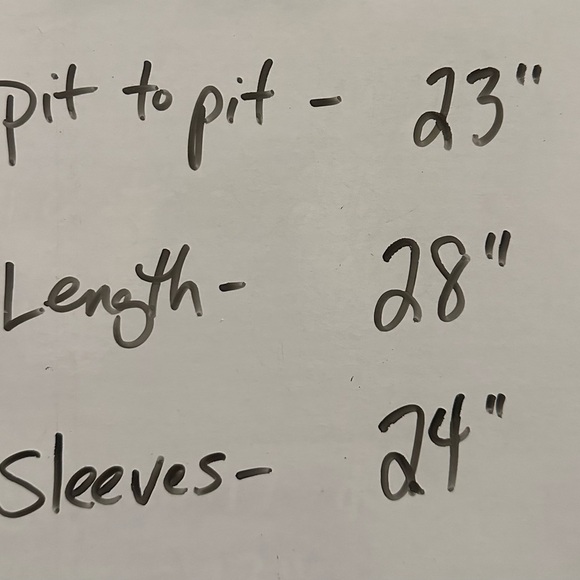 Pit to pit - 23"
Length - 28"
Sleeves - 24"